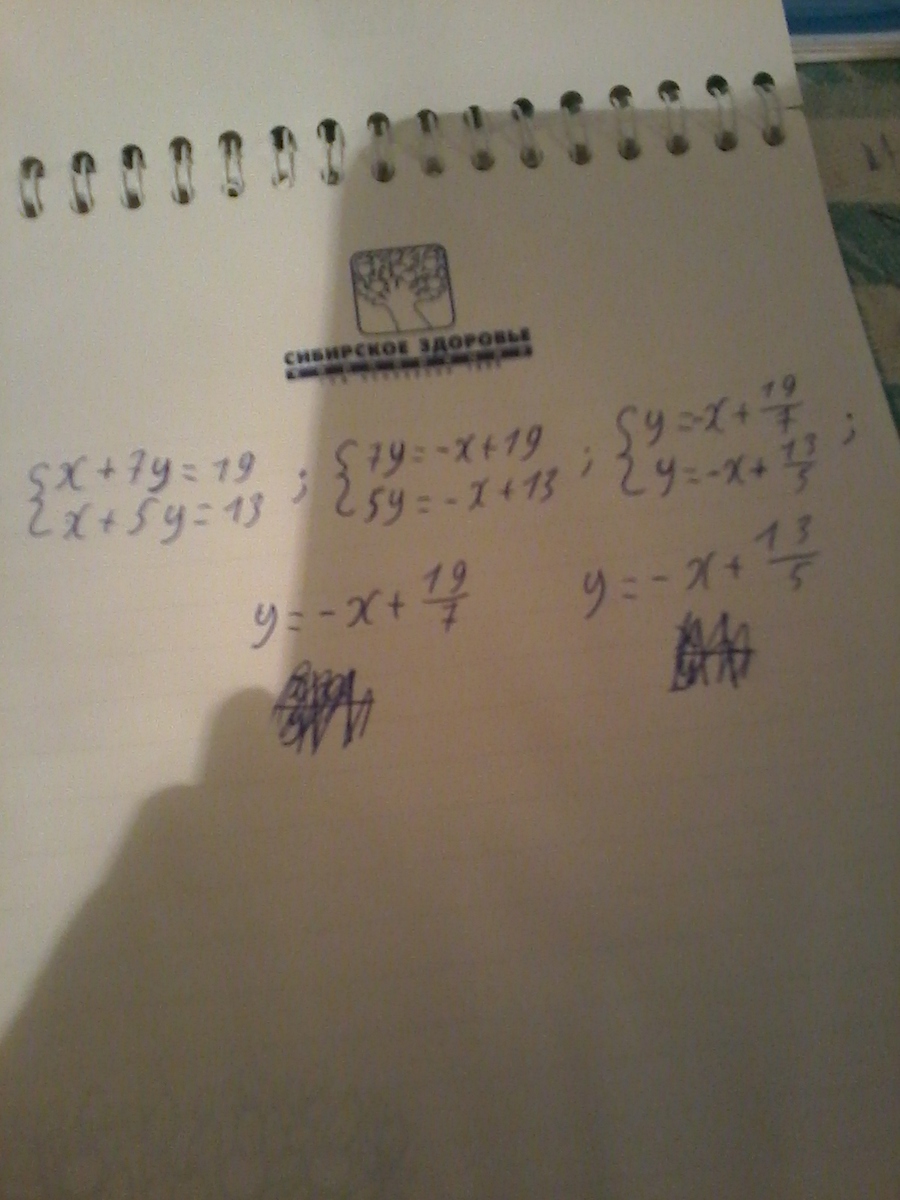 СИБИРСКОЕ ЗДОРОВЬЕ
{x + 7y = 19 ; {7y = -x + 19 ; {y = -x + 19/7 ;
{x + 5y = 13 {5y = -x + 13 {y = -x + 13/5
y = -x + 19/7 y = -x + 13/5